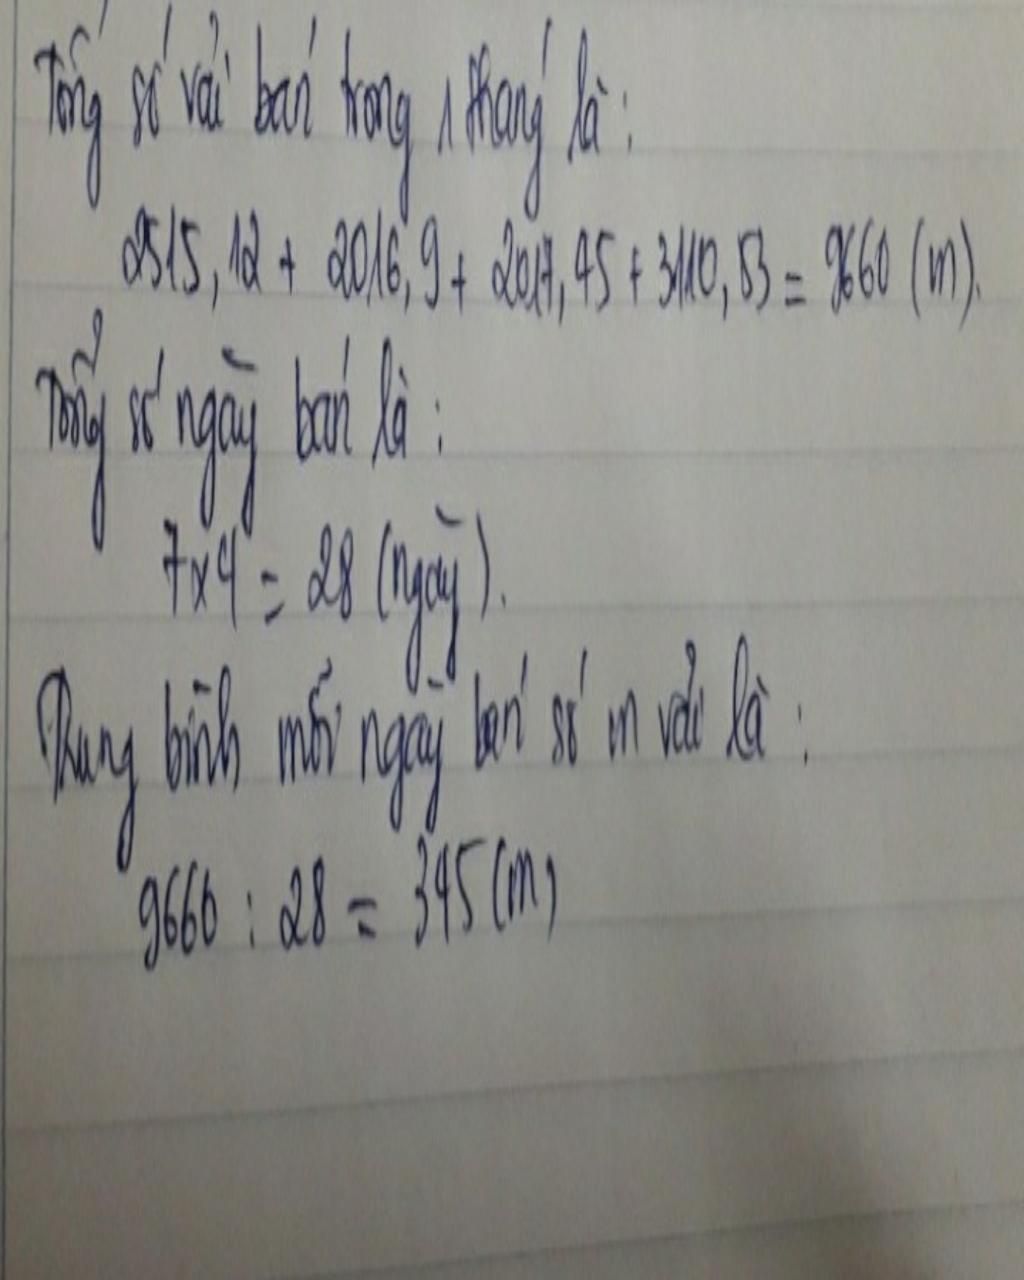 Tổng số vải bán trong 1 tháng là :
2515,12 + 2016,9 + 2017,45 + 3110,53 = 9660 (m).
Tổng số ngày bán là :
7x4 = 28 (ngày).
Trung bình mỗi ngày bán số m vải là :
9660 : 28 = 345 (m)